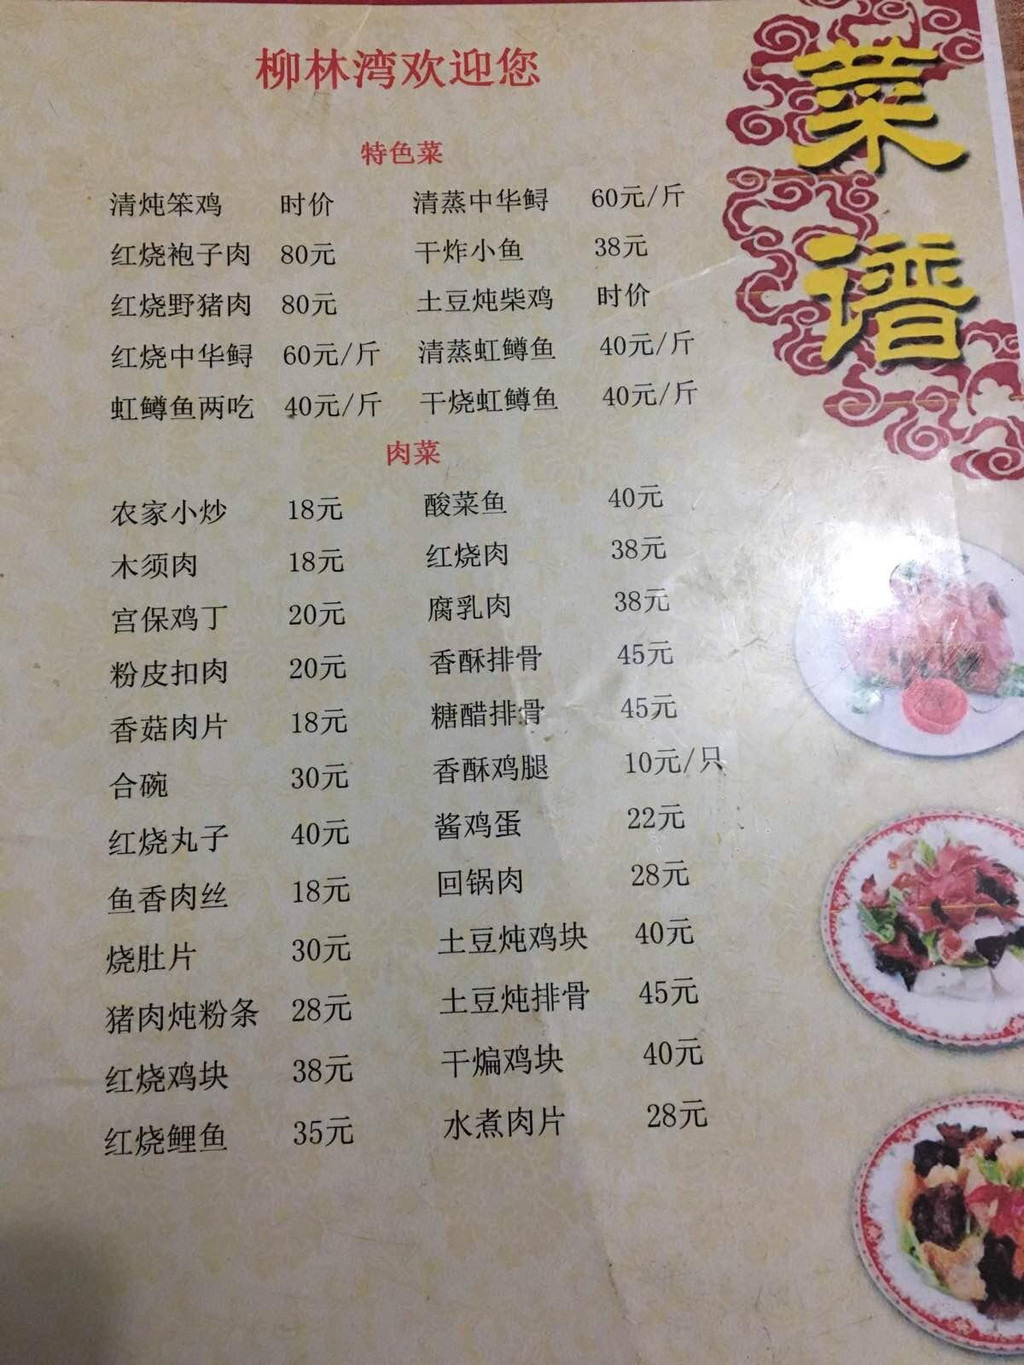 柳林湾欢迎您
菜谱
特色菜
清炖笨鸡 时价 清蒸中华鲟 60元/斤
红烧袍子肉 80元 干炸小鱼 38元
红烧野猪肉 80元 土豆炖柴鸡 时价
红烧中华鲟 60元/斤 清蒸虹鳟鱼 40元/斤
虹鳟鱼两吃 40元/斤 干烧虹鳟鱼 40元/斤
肉菜
农家小炒 18元 酸菜鱼 40元
木须肉 18元 红烧肉 38元
宫保鸡丁 20元 腐乳肉 38元
粉皮扣肉 20元 香酥排骨 45元
香菇肉片 18元 糖醋排骨 45元
合碗 30元 香酥鸡腿 10元/只
红烧丸子 40元 酱鸡蛋 22元
鱼香肉丝 18元 回锅肉 28元
烧肚片 30元 土豆炖鸡块 40元
猪肉炖粉条 28元 土豆炖排骨 45元
红烧鸡块 38元 干煸鸡块 40元
红烧鲤鱼 35元 水煮肉片 28元